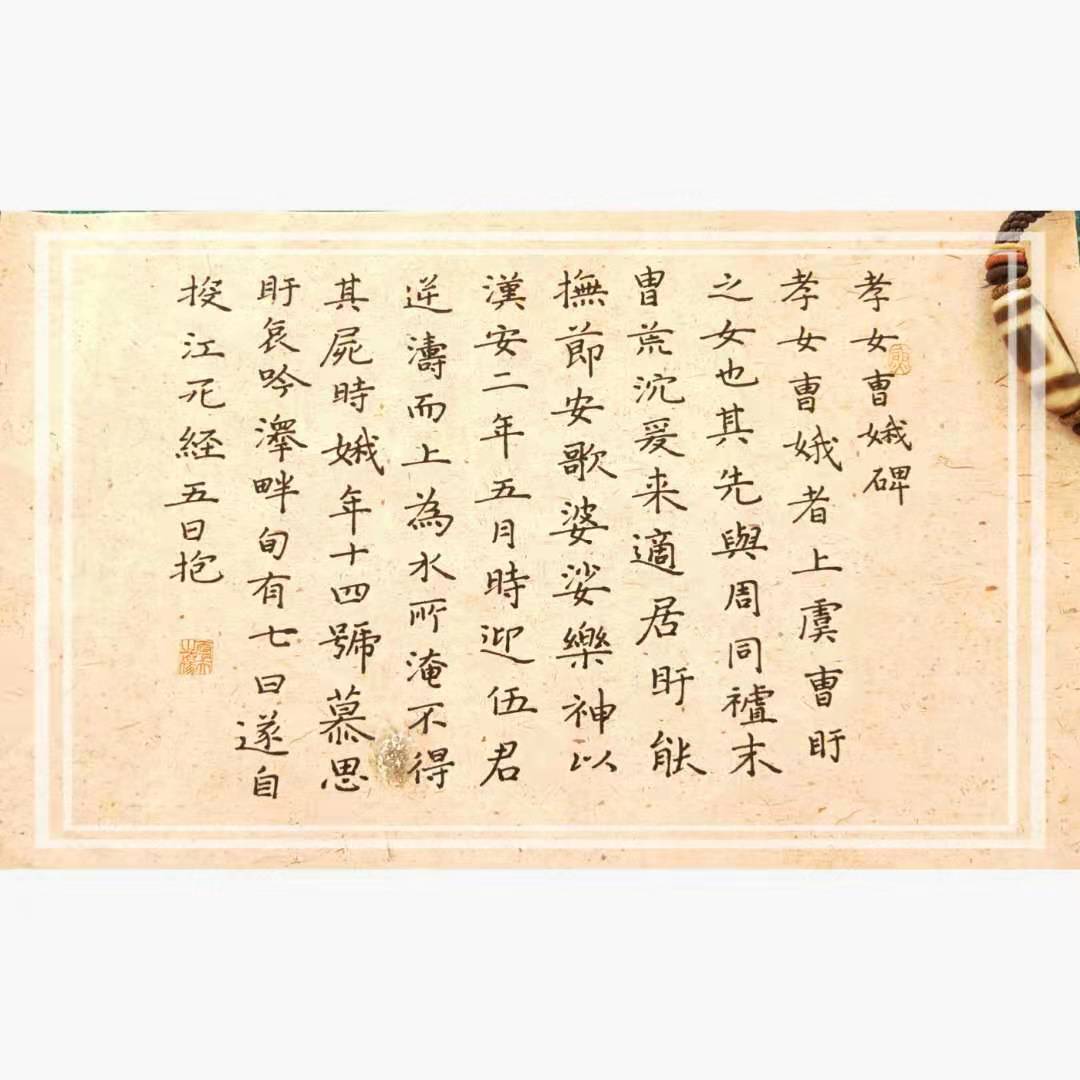 孝女曹娥碑
孝女曹娥者上虞曹盱
之女也其先與周同襤末
胄荒沉爰来適居盱能
撫節安歌婆娑樂神以
漢安二年五月時迎伍君
逆濤而上為水所淹不得
其屍時娥年十四號慕思
盱哀吟澤畔旬有七日遂自
投江死経五日抱